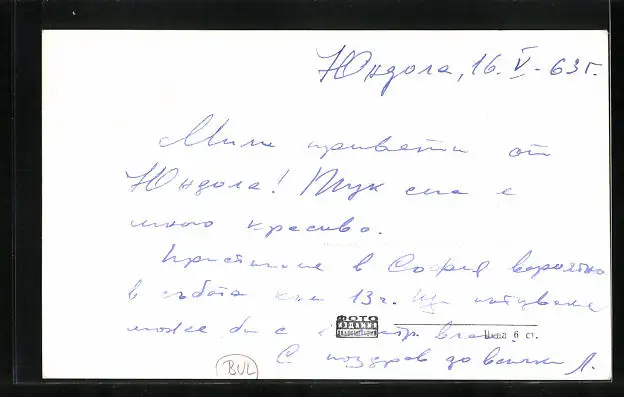 Юндола, 16. V. 63 г.
Мили привети от
Юндола! Тук сега е
много красиво.
Пристигаме в София вероятно
в събота към 13 ч. Ще пътуваме
може би с
ФОТО
ИЗДАНИЕ
Цена 6 ст.
С поздрав до всички Л.
BUL